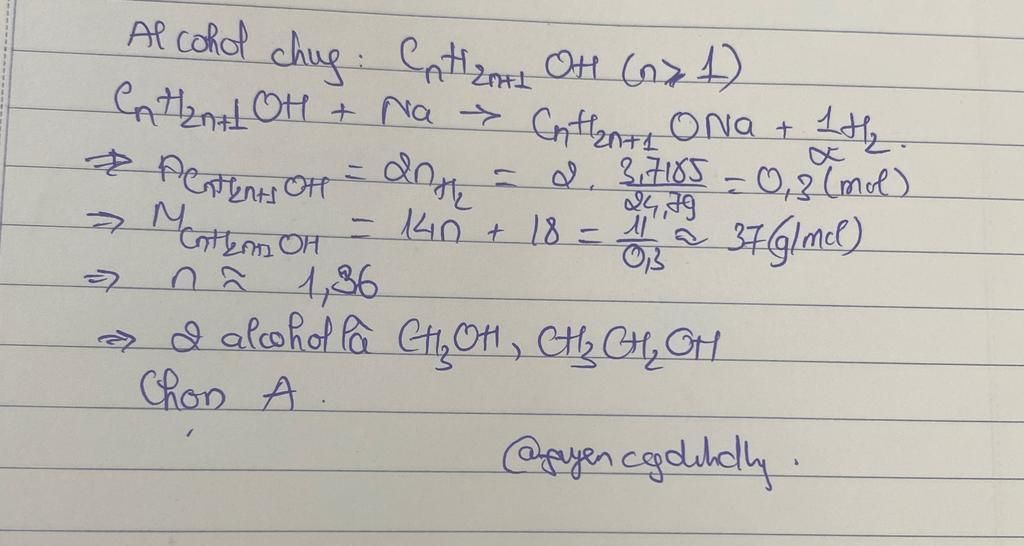 Alcohol chug: CnH2n+1 OH (n ≥ 1)
CnH2n+1OH + Na → CnH2n+1 ONa + 1/2 H2.
⇒ nCnH2n+1OH = 2nH2 = 2. 3,7185/24,79 = 0,3 (mol)
⇒ MCnH2n+1OH = 14n + 18 = 11/0,3 ≈ 37 (g/mol)
⇒ n ≈ 1,36
⇒ 2 alcohol là CH3OH, CH3CH2OH
Chọn A.